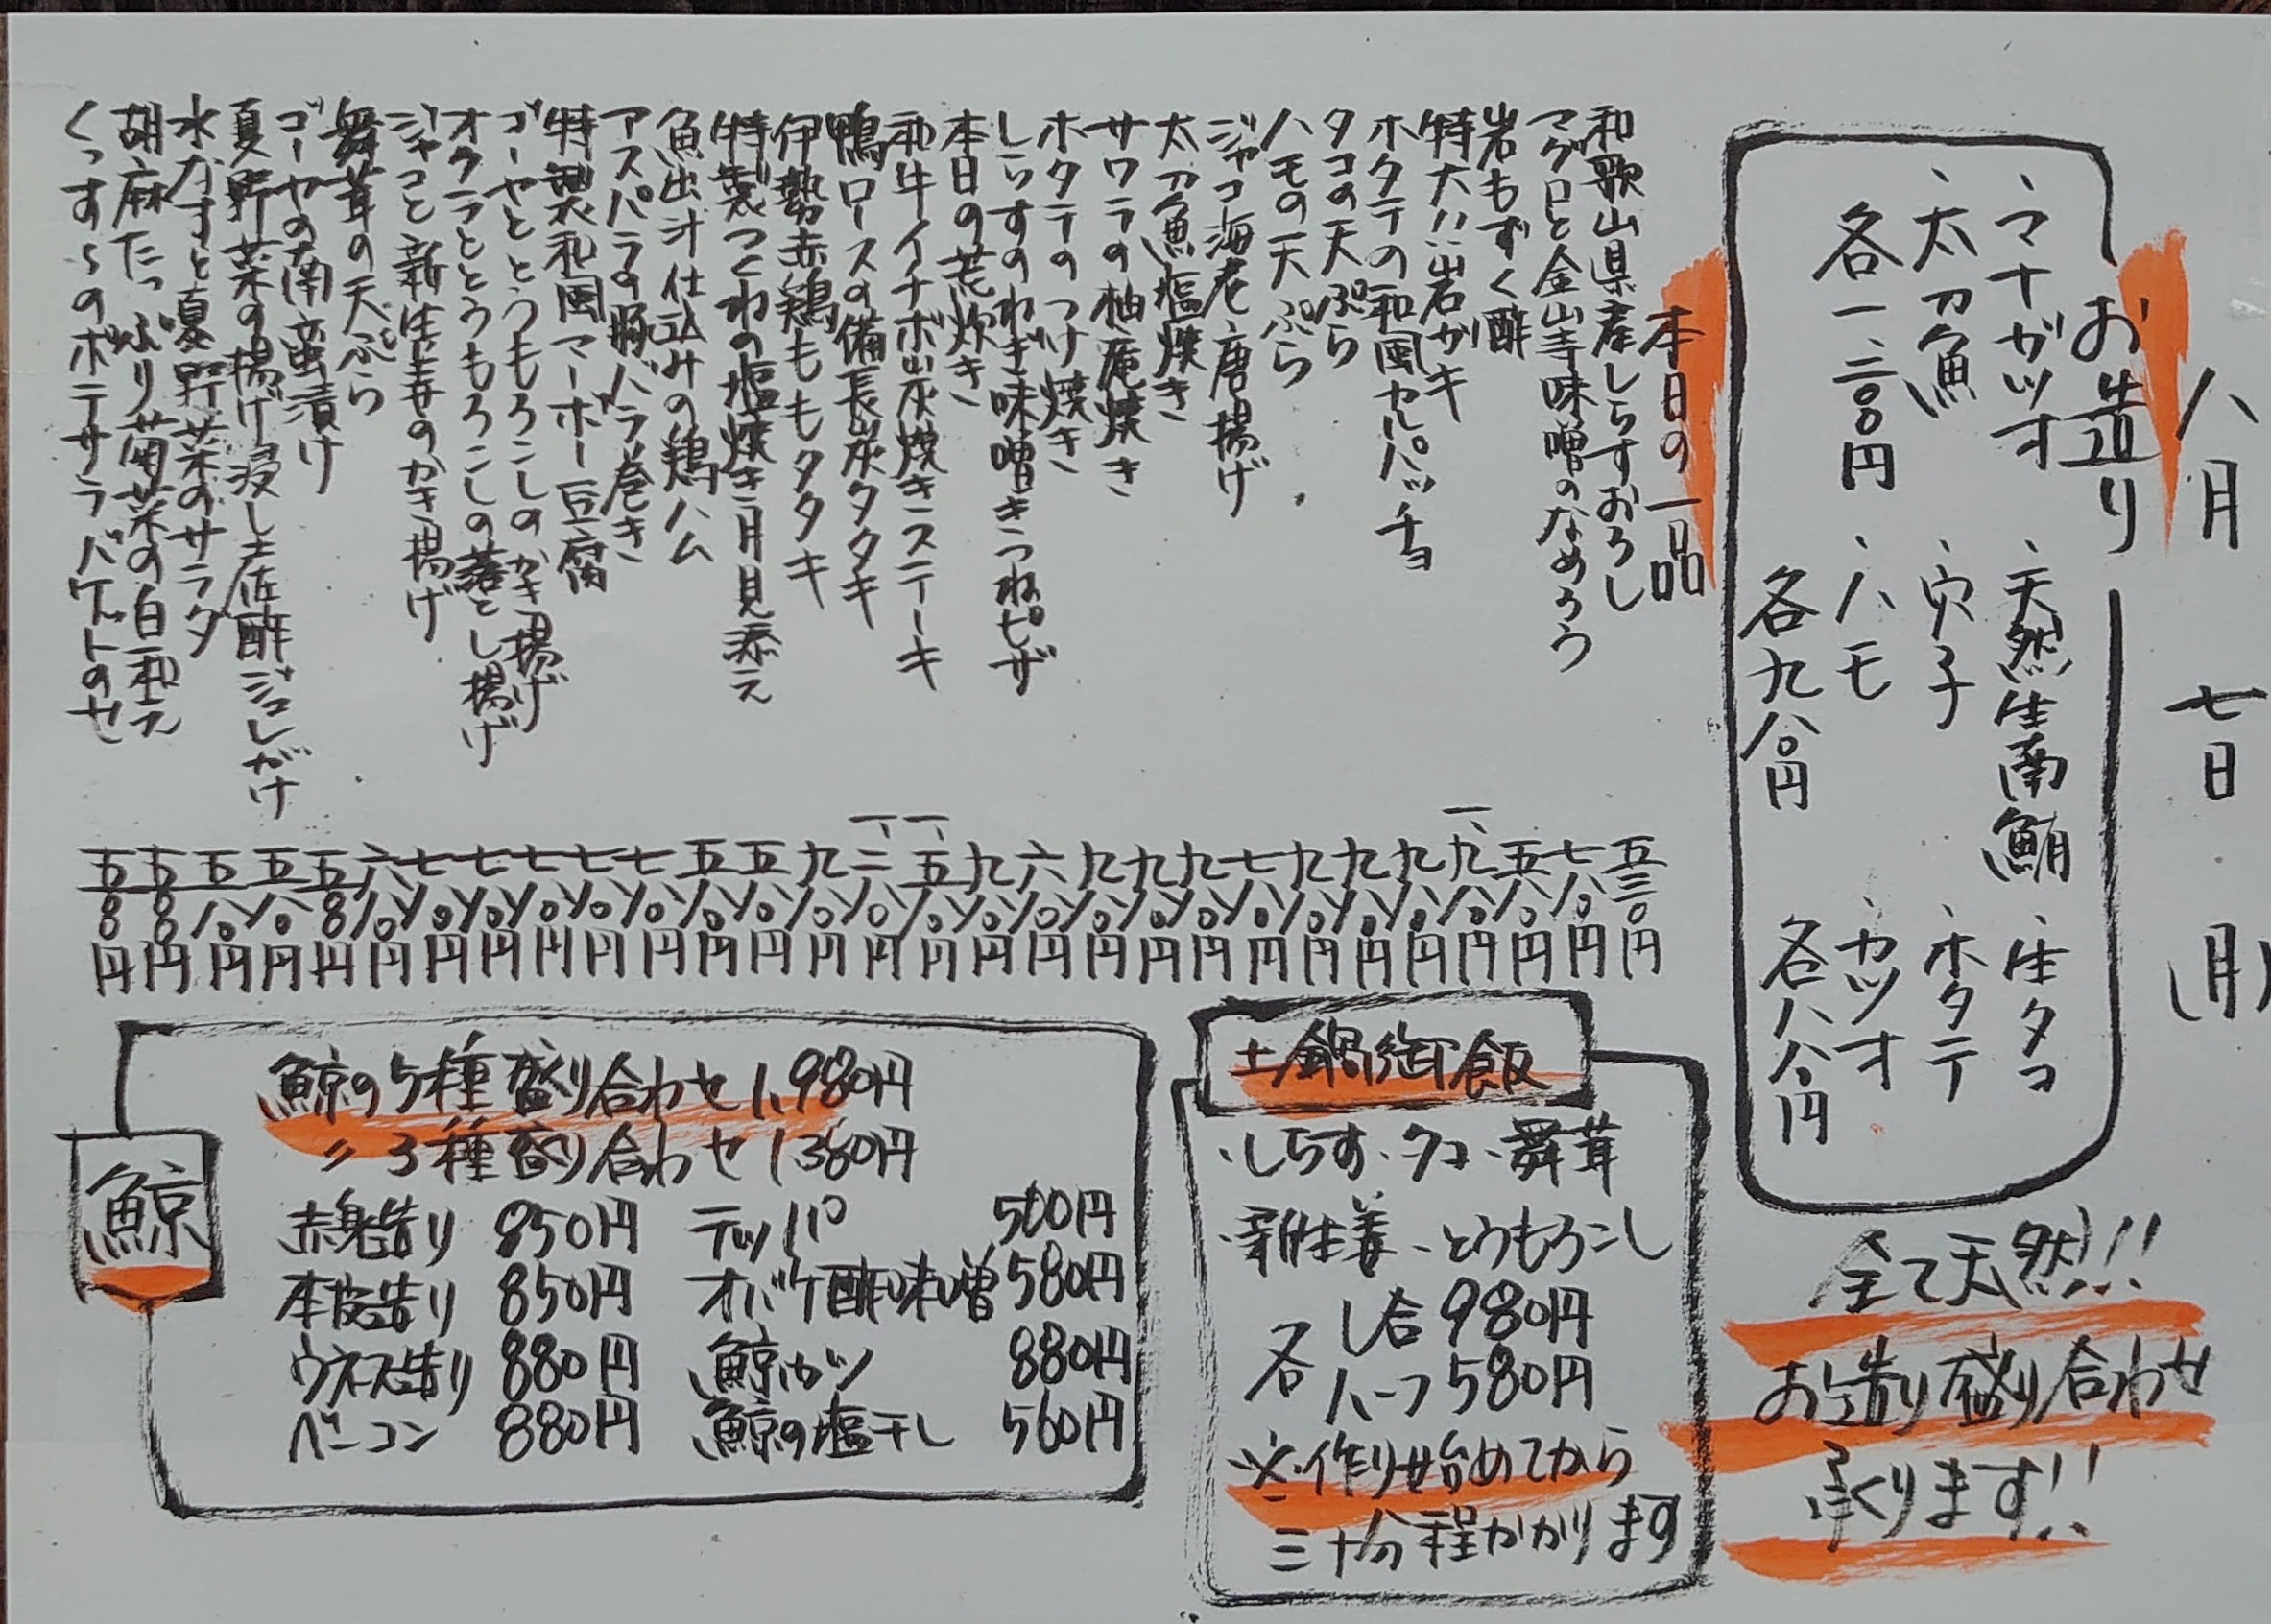 八月七日(月)
お造り
・マナガツオ
・太刀魚
各一、二〇〇円
・天然生南鮪
・穴子
・ハモ
各九八〇円
・生タコ
・ホタテ
・カツオ
各八八〇円
全て天然!!
お造り盛り合わせ
承くります!!
本日の一品
和歌山県産しらすおろし 五三〇円
マグロと金山寺味噌のなめろう 七八〇円
岩もずく酢 五八〇円
特大!!岩ガキ 一、九八〇円
ホタテの和風カルパッチョ 九八〇円
タコの天ぷら 九八〇円
ハモの天ぷら 九八〇円
ジャコ海老唐揚げ 七八〇円
太刀魚塩焼き 九八〇円
サワラの柚庵焼き 九八〇円
ホタテのつけ焼き 九八〇円
しらすのねぎ味噌きつねピザ 六八〇円
本日の荒炊き 九八〇円
和牛イチボ炭焼きステーキ 一、五八〇円
鴨ロースの備長炭タタキ 一、二八〇円
伊勢赤鶏ももタタキ 九八〇円
特製つくねの塩焼き月見添え 五八〇円
魚出汁仕込みの鶏ハム 五八〇円
アスパラの豚バラ巻き 七八〇円
特製和風マーボー豆腐 七八〇円
ゴーヤととうもろこしのかき揚げ 七八〇円
オクラととうもろこしの落とし揚げ 七八〇円
ジャコと新生姜のかき揚げ 七八〇円
舞茸の天ぷら 六八〇円
ゴーヤの南蛮漬け 五〇〇円
夏野菜の揚げ浸し土佐酢ジュレがけ 五八〇円
水なすと夏野菜のサラダ 五八〇円
胡麻たっぷり菊菜の白和え 五〇〇円
くっす〜のポテサラバゲットのせ 五〇〇円
土鍋御飯
・しらす・タコ・舞茸
・新生姜・とうもろこし
各 し合 980円
ハーフ 580円
※作り始めてから
三十分程かかります
鯨
鯨の5種盛り合わせ 1,980円
〃 3種盛り合わせ 1,380円
赤身造り 850円 テッパ 500円
本皮造り 850円 オバケ酢味噌 580円
ウネス造り 880円 鯨カツ 880円
ベーコン 880円 鯨の塩干し 560円